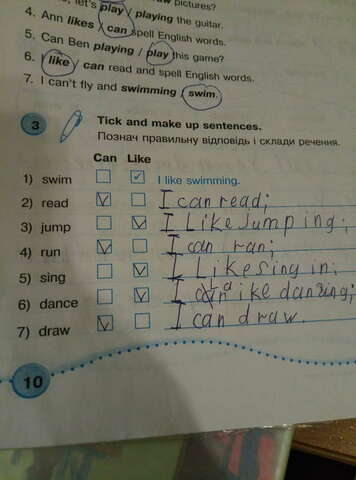 let's play / playing the guitar.
pictures?
4. Ann likes / can spell English words.
5. Can Ben playing / play this game?
6. I like / can read and spell English words.
7. I can't fly and swimming / swim.
3 Tick and make up sentences.
Познач правильну відповідь і склади речення.
Can Like
1) swim I like swimming.
2) read I can read;
3) jump I Like jumping;
4) run I can ran;
5) sing I Like sing in;
6) dance I like dancing;
7) draw I can draw.
10